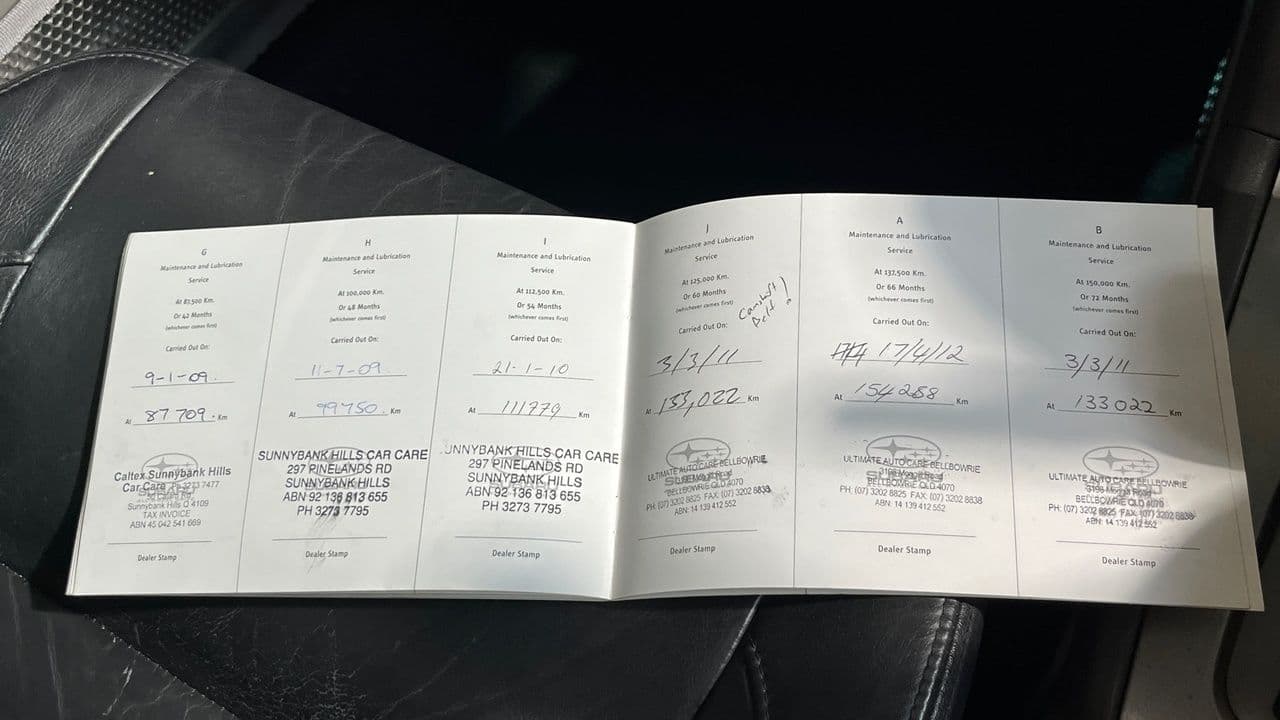 G
Maintenance and Lubrication
Service
At 87,500 Km.
Or 42 Months
(whichever comes first)
Carried Out On:
9-1-09.
At 87 709. Km
Caltex Sunnybank Hills
Car Care Ph 3273 7477
Sunnybank Hills Q 4109
TAX INVOICE
ABN 45 042 541 669
Dealer Stamp
H
Maintenance and Lubrication
Service
At 100,000 Km.
Or 48 Months
(whichever comes first)
Carried Out On:
11-7-09.
At 99750. Km
SUNNYBANK HILLS CAR CARE
297 PINELANDS RD
SUNNYBANK HILLS
ABN 92 136 813 655
PH 3273 7795
Dealer Stamp
I
Maintenance and Lubrication
Service
At 112,500 Km.
Or 54 Months
(whichever comes first)
Carried Out On:
21-1-10
At 111779 Km
UNNYBANK HILLS CAR CARE
297 PINELANDS RD
SUNNYBANK HILLS
ABN 92 136 813 655
PH 3273 7795
Dealer Stamp
J
Maintenance and Lubrication
Service
At 125,000 Km.
Or 60 Months
(whichever comes first)
Camshaft
Belt!
Carried Out On:
3/3/11
At 133,022 Km
ULTIMATE AUTO CARE BELLBOWRIE
BELLBOWRIE QLD 4070
PH: (07) 3202 8825 FAX: (07) 3202 8838
ABN: 14 139 412 552
Dealer Stamp
A
Maintenance and Lubrication
Service
At 137,500 Km.
Or 66 Months
(whichever comes first)
Carried Out On:
17/4/12
At 154268 Km
ULTIMATE AUTO CARE BELLBOWRIE
BELLBOWRIE QLD 4070
PH: (07) 3202 8825 FAX: (07) 3202 8838
ABN: 14 139 412 552
Dealer Stamp
B
Maintenance and Lubrication
Service
At 150,000 Km.
Or 72 Months
(whichever comes first)
Carried Out On:
3/3/11
At 133022 Km
ULTIMATE AUTO CARE BELLBOWRIE
BELLBOWRIE QLD 4070
PH: (07) 3202 8825 FAX: (07) 3202 8838
ABN: 14 139 412 552
Dealer Stamp